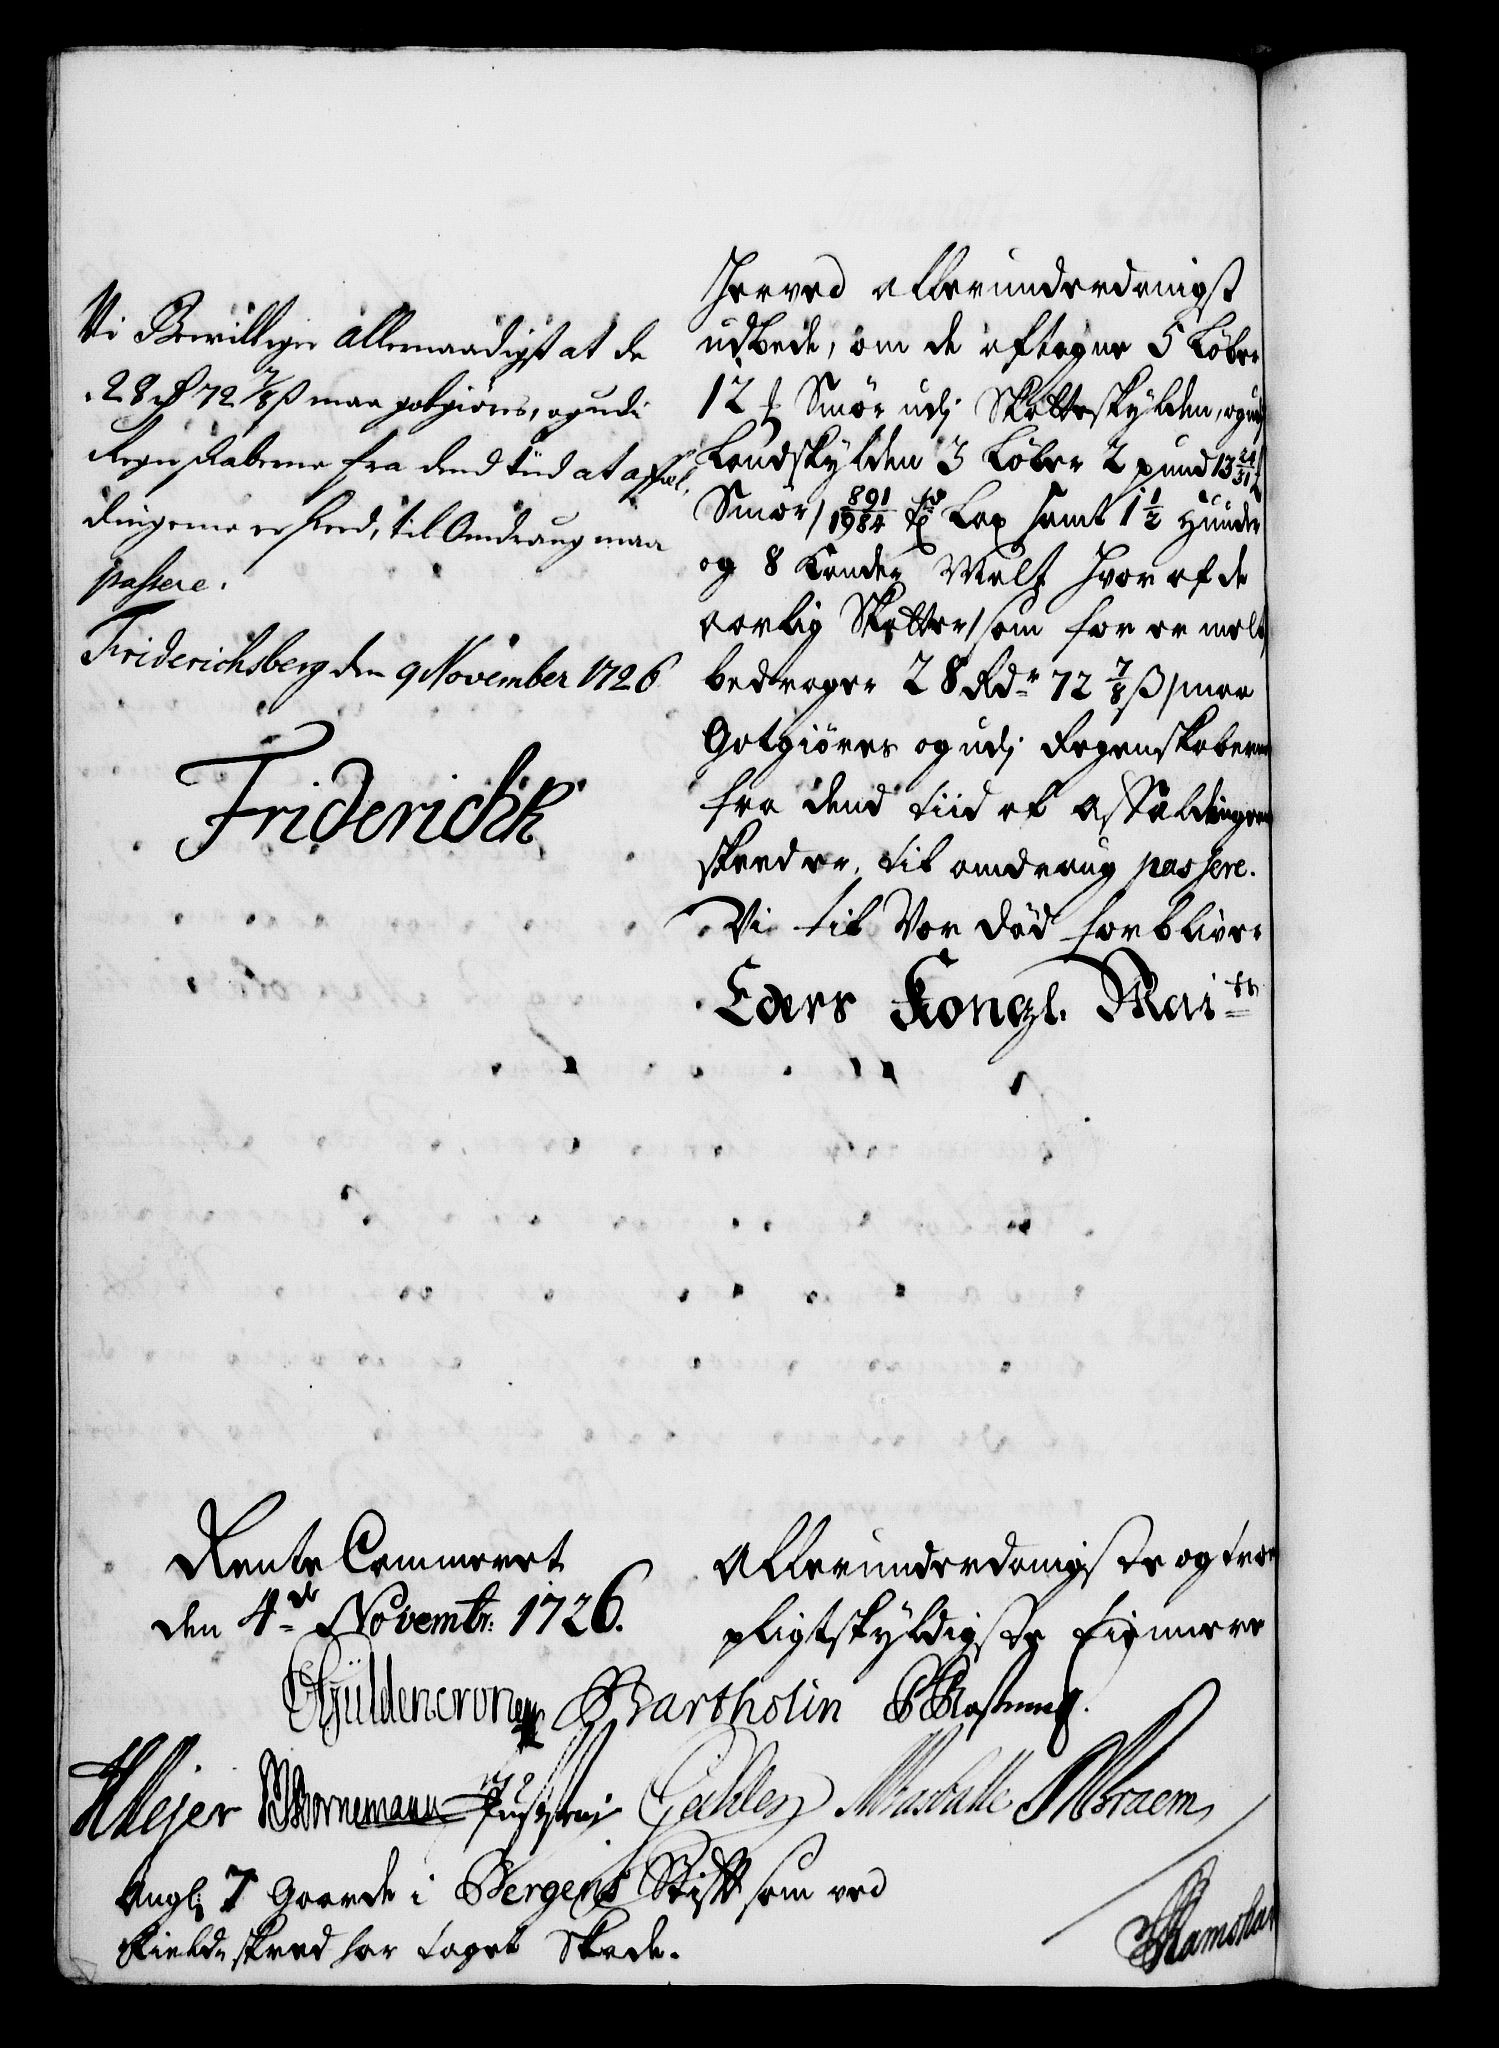 Vi Bevilliger allernaadigst at de
28 rd 72 7/8 ß maa gotgiøris, og udi
Regnskaberne fra dend tiid at affæl,
dingerne er skeed, til Omdraug maa
passere.
Friderichsberg den 9 November 1726
Friderich R
Herved allerunderdanigst
udbede, om de aftagne 5 Løber
12 Smør udj Skatteskylden, og udj
Landskylden 3 Løber 2 pund 13 24/31
Smør/ 891/1984 Lax samt 1 1/2 Hunder
og 8 Kander Malt hvoraf de
aarlig Skatter/ som før er melt/
bedrager 28 Rdr 72 7/8 ß/ maa
Gotgiøres og udj Regenskaberne
fra dend tiid at Affældingerne
skeed er, til omdraug passere.
Vi til Vor Død forbliver
Eders Kongl. Mai.ts
Rente Cammeret
den 4de Novembr: 1726.
Allerunderdanigste og troe
pligtskyldigste tiennere
Güldencrone Bartholin
HMejer Bornemann
Angl: 7 Gaarde i Bergens Stift som ved
Field-skred har taget Skade.